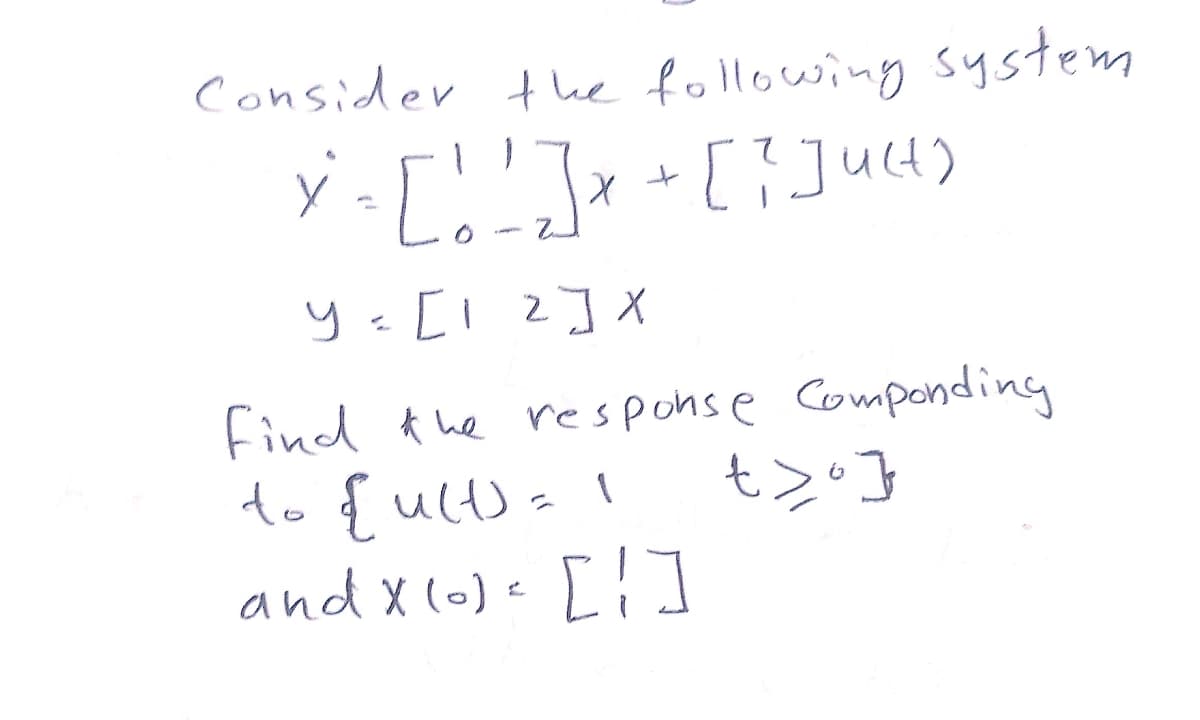 Consider the following system
ẋ = [1 1
0 -2] x + [
1] u(t)
y = [1 2] x
Find the response Componding
to { u(t) = 1 t ≥ 0 }
and x(0) = [1
1]